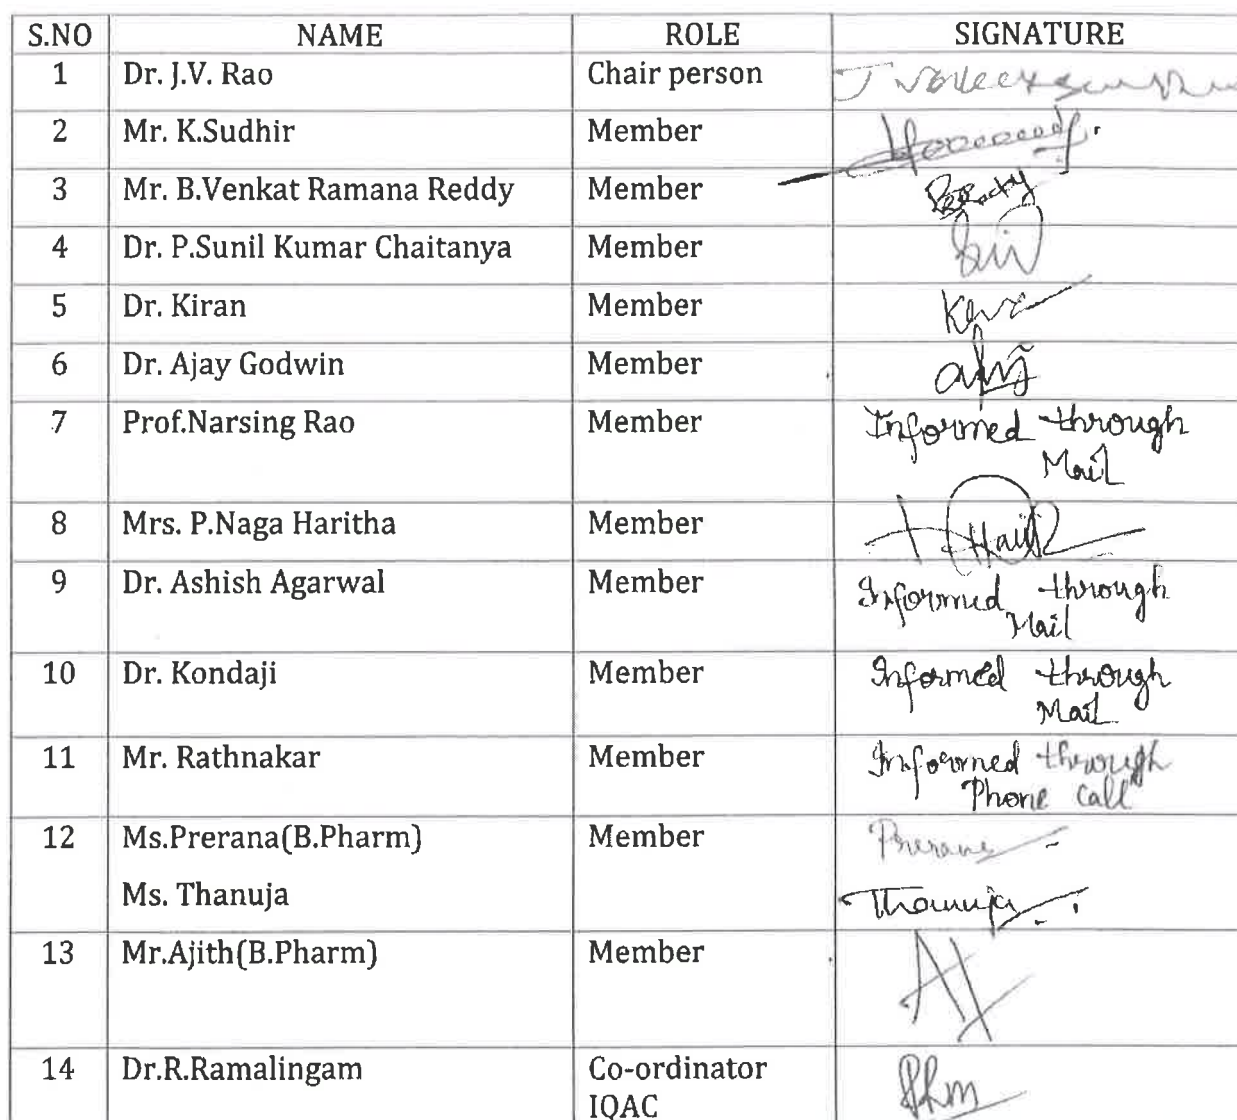 S.NO NAME ROLE SIGNATURE
1 Dr. J.V. Rao Chair person
2 Mr. K.Sudhir Member
3 Mr. B.Venkat Ramana Reddy Member
4 Dr. P.Sunil Kumar Chaitanya Member
5 Dr. Kiran Member
6 Dr. Ajay Godwin Member
7 Prof.Narsing Rao Member Informed through
Mail
8 Mrs. P.Naga Haritha Member
9 Dr. Ashish Agarwal Member Informed through
Mail
10 Dr. Kondaji Member Informed through
Mail
11 Mr. Rathnakar Member Informed through
Phone call
12 Ms.Prerana(B.Pharm) Member Prerana
Ms. Thanuja Thanuja
13 Mr.Ajith(B.Pharm) Member
14 Dr.R.Ramalingam Co-ordinator
IQAC